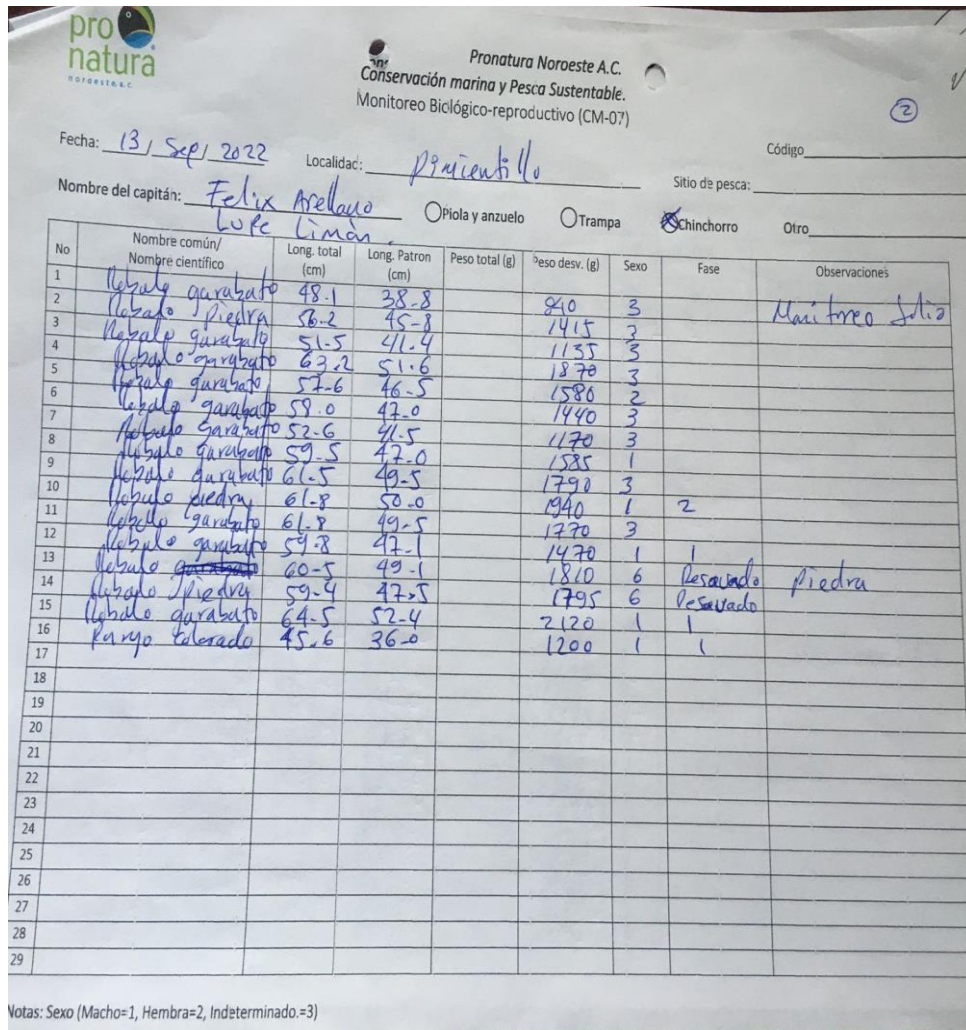 pro
natura
noroeste a.c.
Pronatura Noroeste A.C.
Conservación marina y Pesca Sustentable.
Monitoreo Biológico-reproductivo (CM-07)
2
Fecha: 13 / Sep / 2022 Localidad: Pimientillo Código
Nombre del capitán: Felix Arellano Piola y anzuelo Trampa Chinchorro Sitio de pesca: Otro
Lupe Limón.
No Nombre común/ Nombre científico Long. total (cm) Long. Patron (cm) Peso total (g) Peso desv. (g) Sexo Fase Observaciones
1 Robalo garabato 48.1 38-8 840 3 Monitoreo
2 Robalo Piedra 56-2 45-8 1415 3
3 Robalo garabato 51-5 41.4 1135 3
4 Robalo garabato 63.2 51.6 1870 3
5 Robalo garabato 57-6 46-5 1580 2
6 Robalo garabato 59.0 47-0 1440 3
7 Robalo garabato 52-6 41-5 1170 3
8 Robalo garabato 59-5 47-0 1585 1
9 Robalo garabato 61-5 49-5 1790 3
10 Robalo piedra 61-8 50-0 1940 1 2
11 Robalo garabato 61-8 49-5 1770 3
12 Robalo garabato 59-8 47-1 1470 1 1
13 Robalo garabato 60-5 49-1 1810 6 Desovado Piedra
14 Robalo Piedra 59-4 47.5 1795 6 Desovado
15 Robalo garabato 64-5 52-4 2120 1 1
16 Pargo Colorado 45.6 36-0 1200 1 1
17
18
19
20
21
22
23
24
25
26
27
28
29
Notas: Sexo (Macho=1, Hembra=2, Indeterminado.=3)